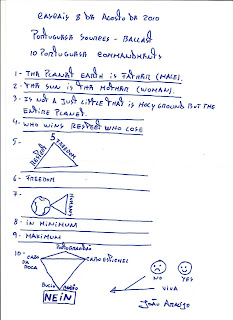 CASCAIS 8 DE AGOSTO DE 2010
PORTUGUESA SOURCES - BALLAST
10 PORTUGUESA COMMANDMANTS
1 - THA PLANET EARTH IS FATHER (MALE).
2 - THA SUN IS THA MOTHER (WOMAN).
3 - IS NOT A JUST LITTLE THAT IS HOLY GROUND BUT THE
ENTIRE PLANET.
4. WHO WINS RESPECT WHO LOSE
5 -
5 FREEDOM
RESPECT
6 - FREEDOM
7 -
HUMANS
8 - IN MINIMUM
9 - MAXIMUM
10 - CABO DA ROCA
CABO ESPICHEL
BUGIO
NEIN
NO YES
VIVA
JOÃO ARAÚJO